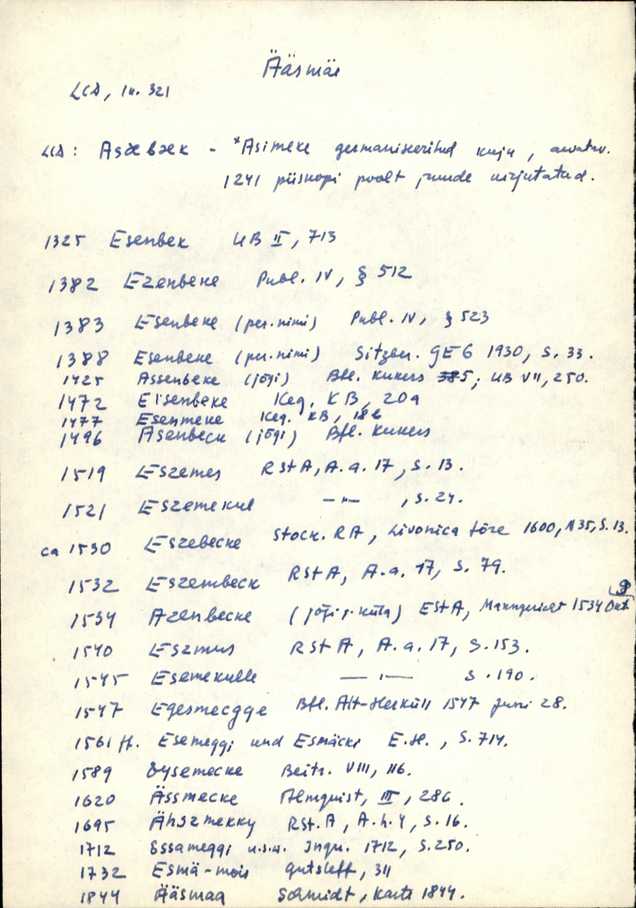 Ääsmäe
LCD, lk. 321
LCD: Asæbæk - *Asimeke germaniseeritud kuju, arvatav.
1241 piiskopi poolt juurde kirjutatud.
1325 Esenbek UB II, 713
1382 Ezenbeke Publ. IV, § 512
1383 Esenbeke (per.nimi) Publ. IV, § 523
1388 Esenbeke (per.nimi) Sitzber. GEG 1930, S. 33.
1425 Assenbeke (jõgi) Bfl. Kukers 5; UB VII, 250.
1472 Eisenbeke Keg. KB, 20a
1477 Esenmeke Keg. KB, 186
1496 Asenbeck (jõgi) Bfl. Kukers
1519 Eszemes RStA, A.a. 17, S. 13.
1521 Eszemekul —"— , S. 24.
ca 1530 Eszebecke Stock. RA, Livonica före 1600, N35, S. 13.
1532 Eszembeck RStA, A.a. 17, S. 79.
1534 Azenbecke (jõgi j. küla) EStA, Manngericht 1534 Okt 9
1540 Eszmus RStA, A.a. 17, S. 153.
1545 Esemekulle —"— S. 190.
1547 Egesmecgge Bfl. Alt-Harküll 1547 Juni 28.
1561 ff. Esemeggi und Esmäcki E.H., S. 714.
1589 Oysemecke Beitr. VIII, 116.
1620 Ässmecke Almquist, III, 286.
1695 Ähszmekky RSt.A, A.h.4, S. 16.
1712 Essameggi u.s.w. Ingri. 1712, S. 250.
1732 Esmä-mois Gutsleff, 311
1844 Ääsmaa Schmidt, Karte 1844.